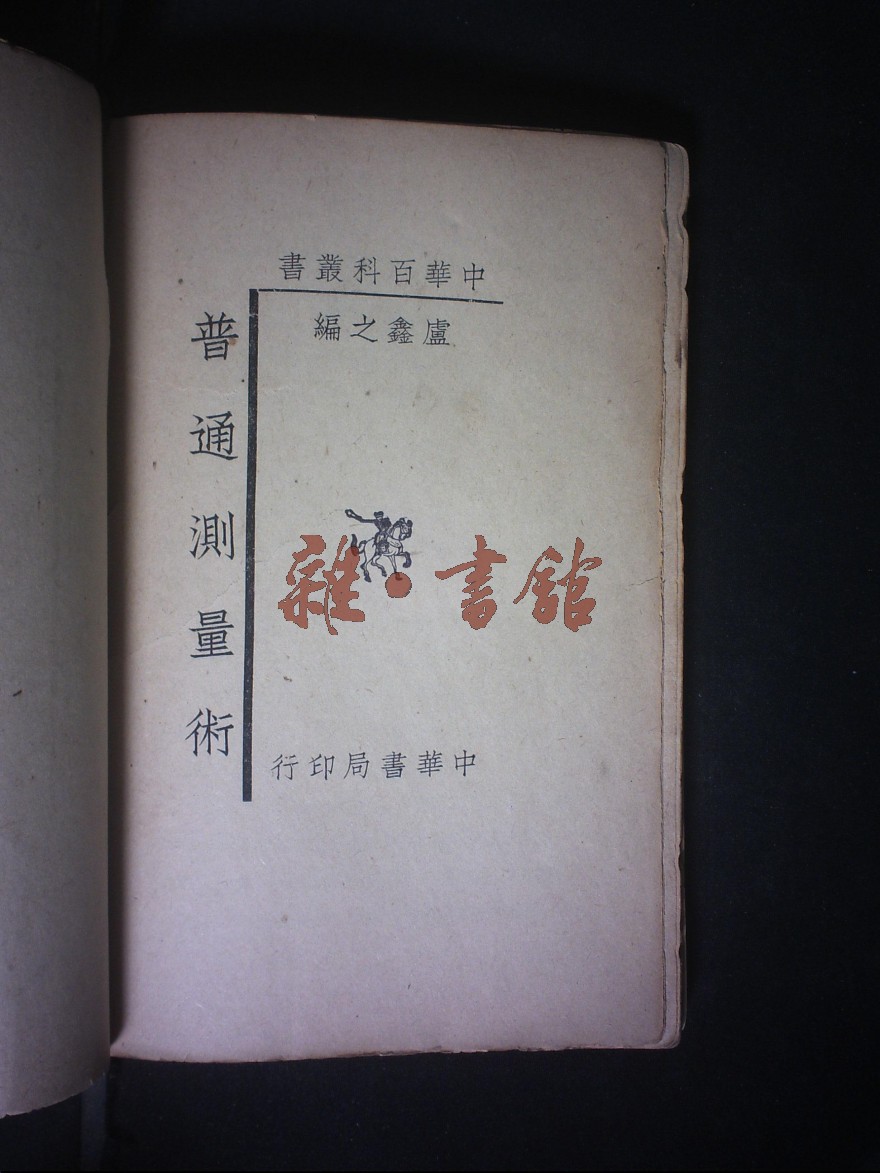 中華百科叢書
盧鑫之編
普通測量術
雜·書館
中華書局印行